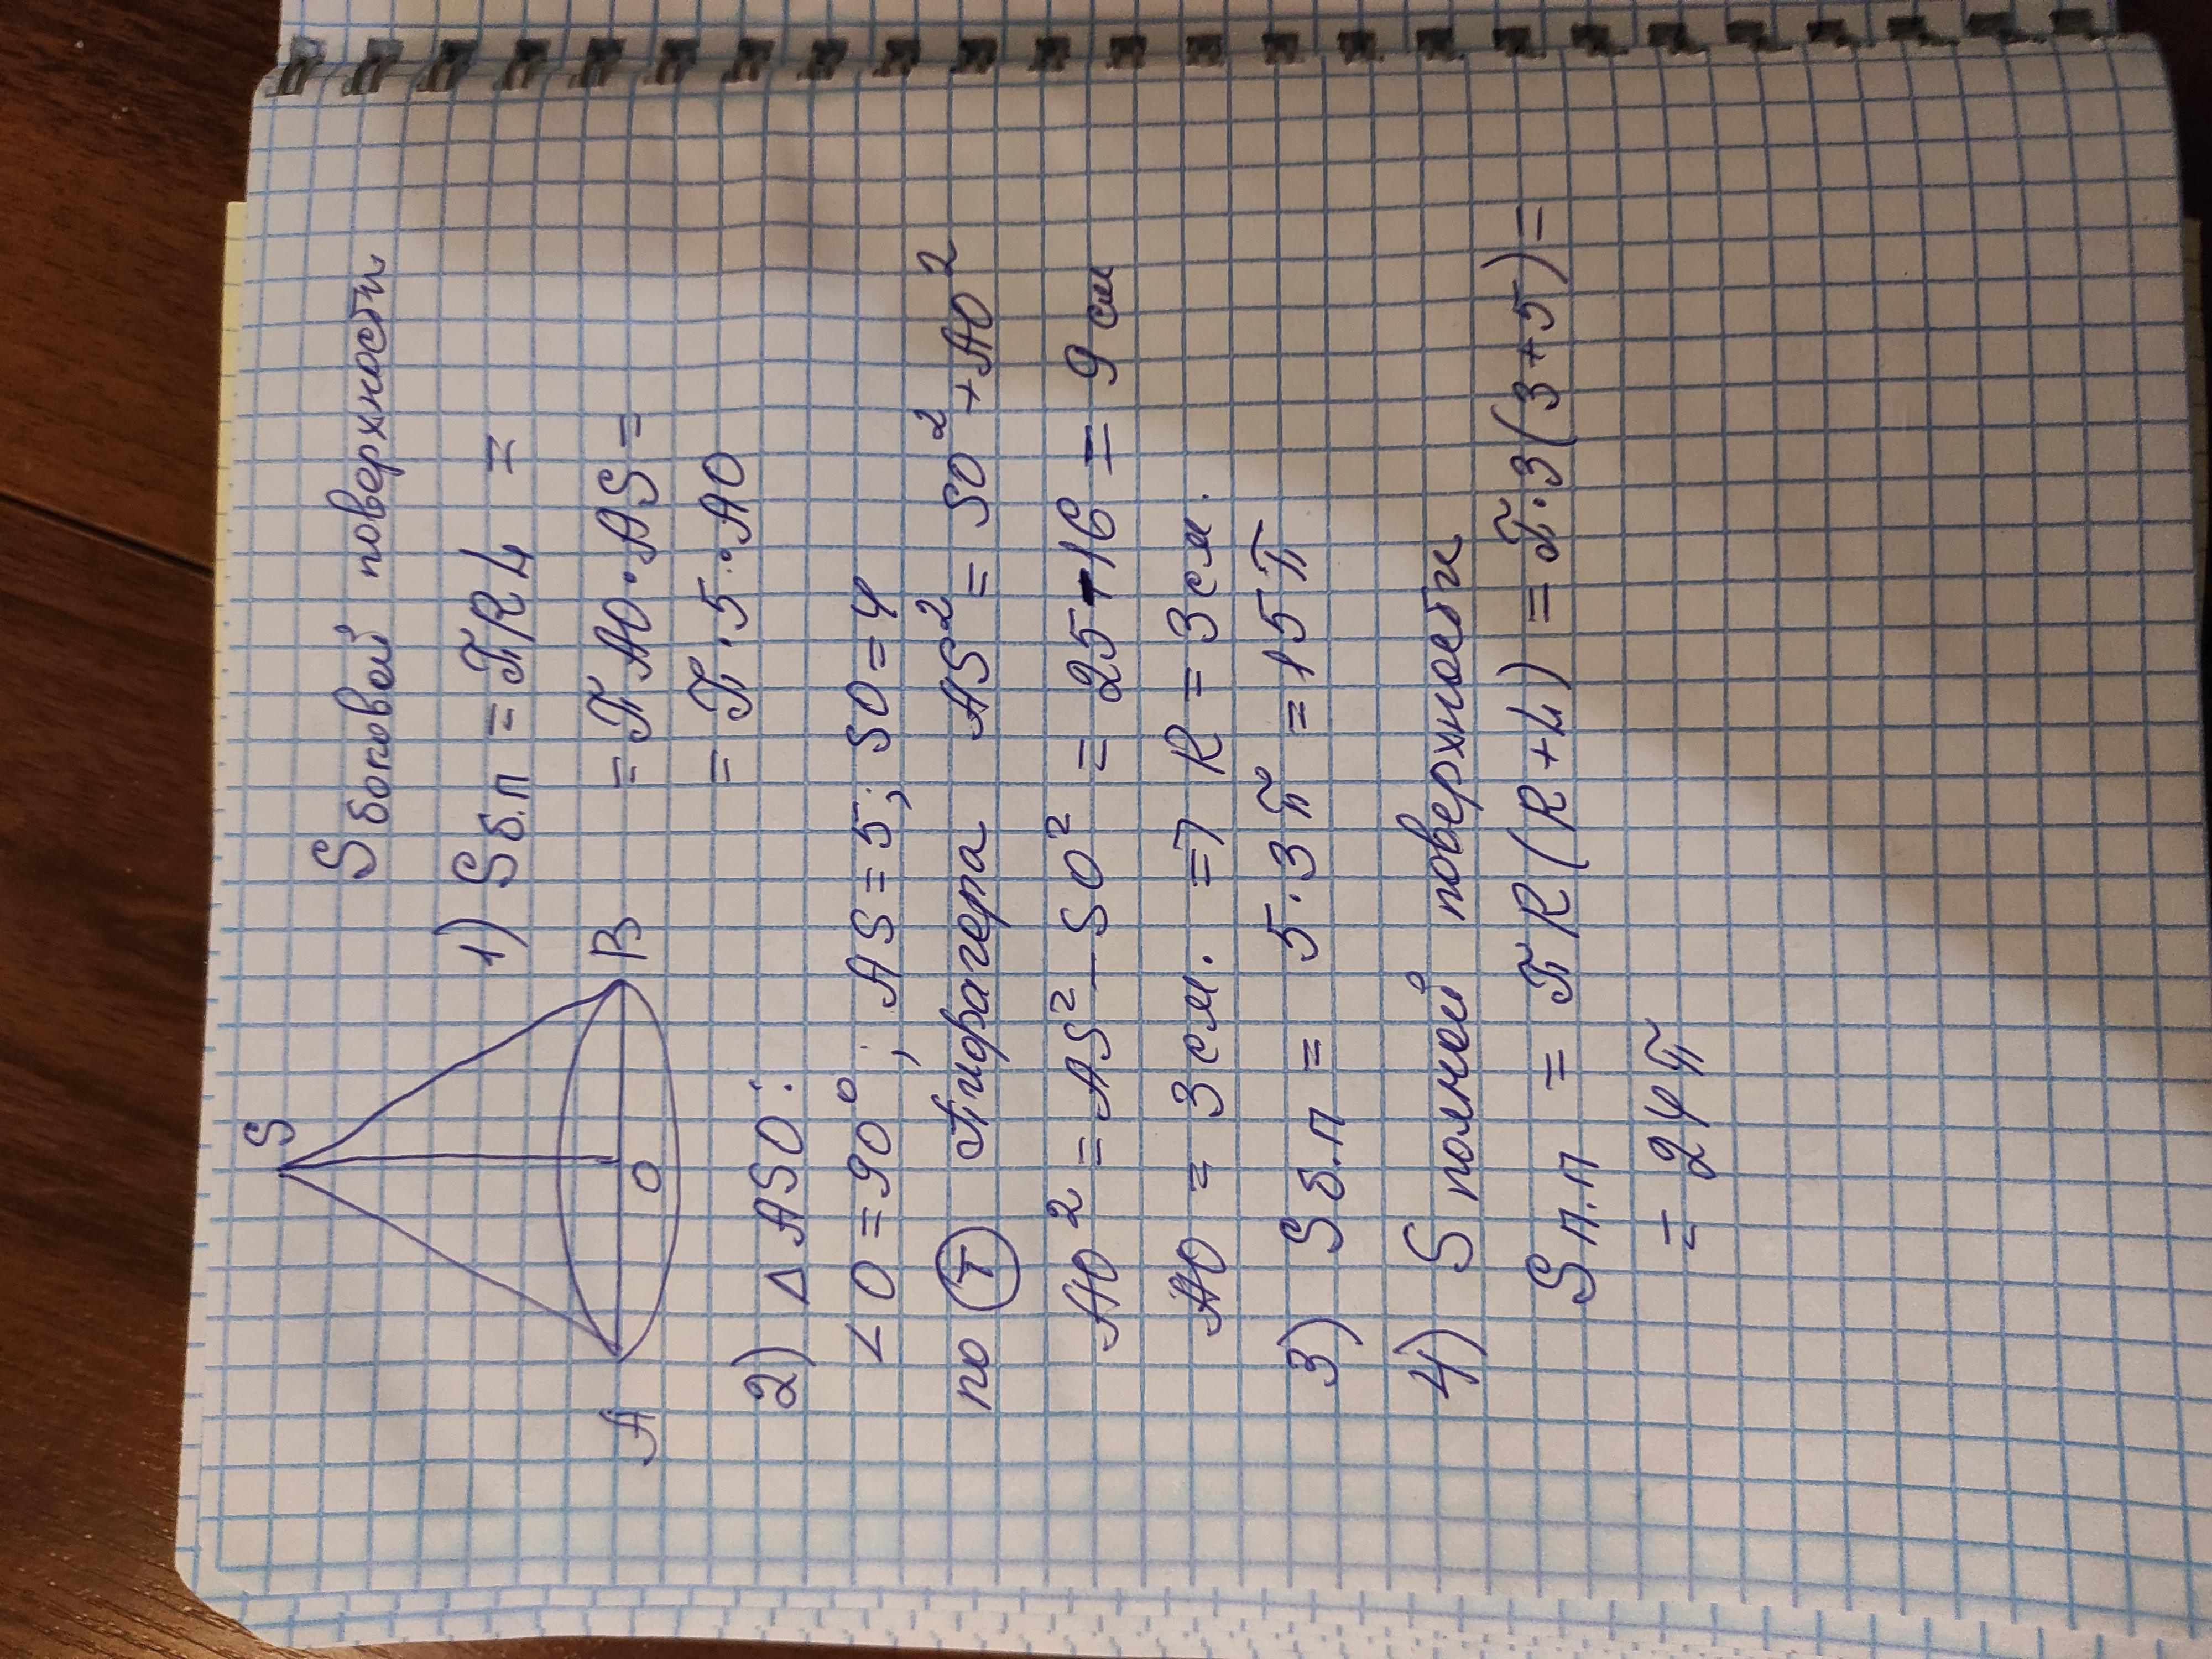 S боковой поверхности
S
1) Sб.п = πRL =
= π AO · AS =
A O B
= π · 5 · AO
2) Δ ASO:
< O = 90°; AS = 5; SO = 4
по Т Пифагера AS² = SO² + AO²
AO² = AS² - SO² = 25 - 16 = 9 см
AO = 3 см. => R = 3 см.
3) S б.п = 5 · 3 π = 15 π
4) S полной поверхности
S п.п = π R (R + L) = π · 3 (3 + 5) =
= 24 π